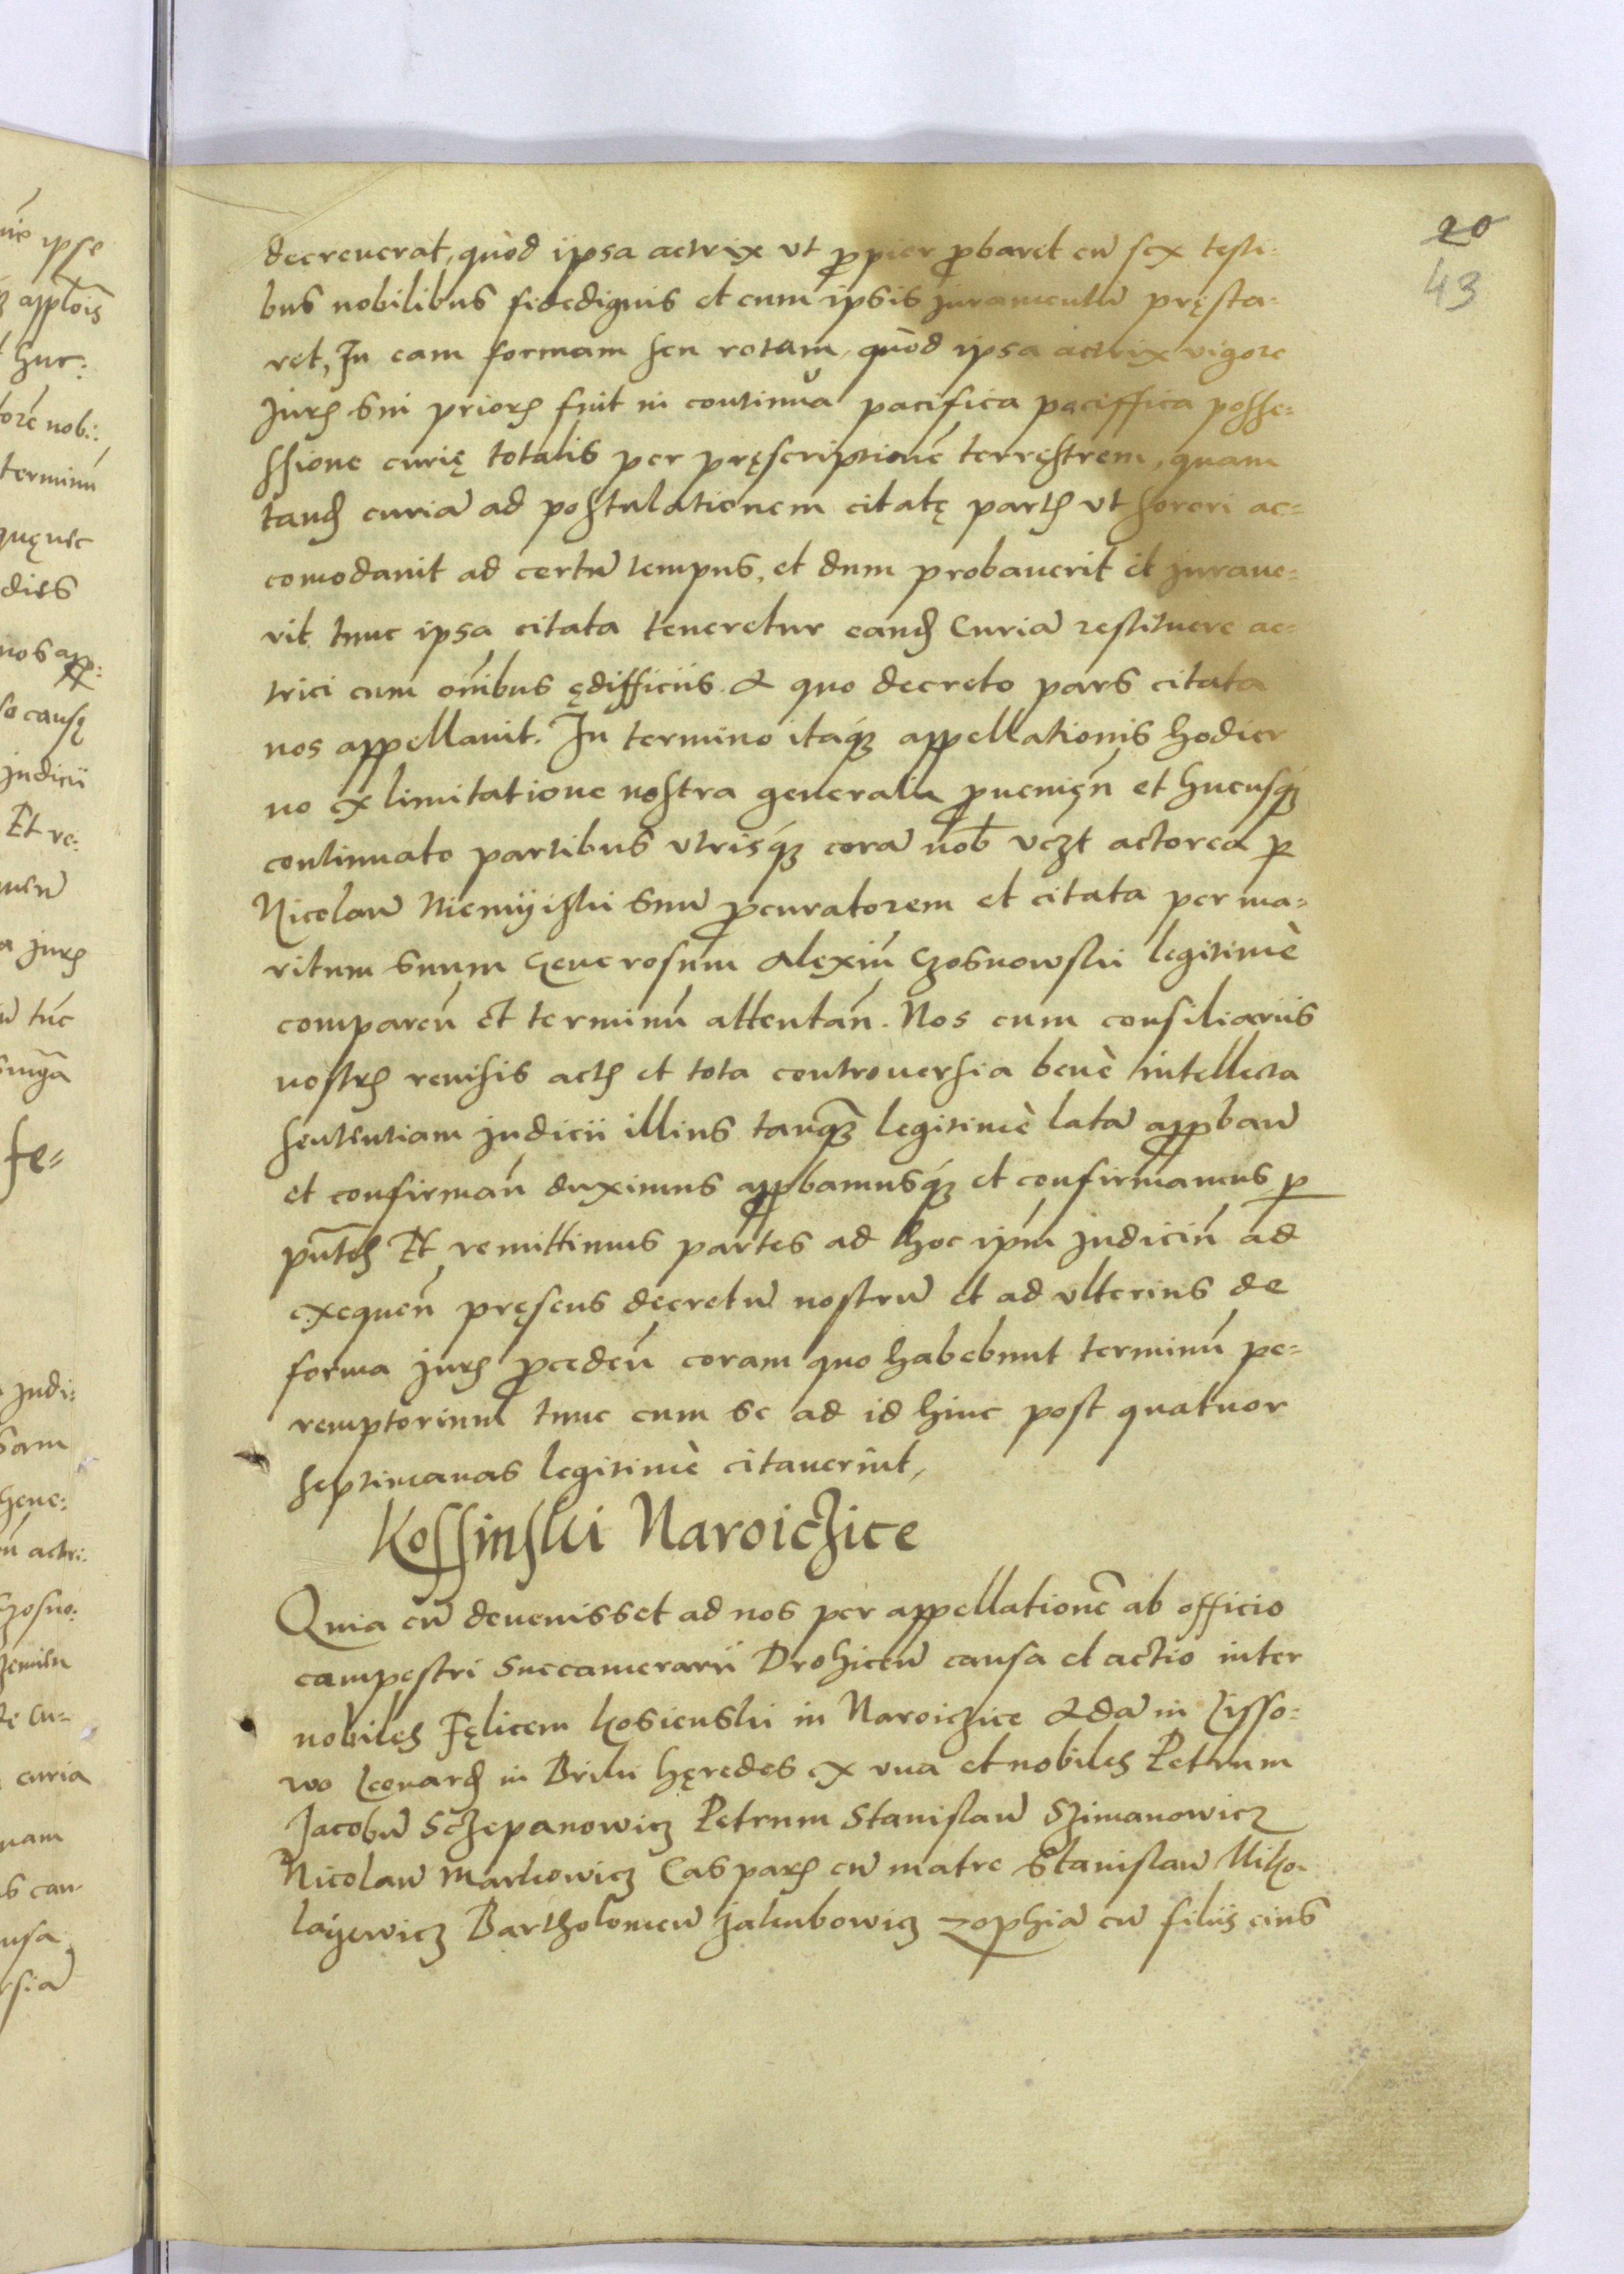 20
43
decreuerat, quòd ipsa actrix vt ꝓpior ꝓbaret cū sex testi-
bus nobilibus fidedignis et cum ipsis iuramentū pręsta-
ret, In eam formam seu rotam, quòd ipsa actrix vigore
Juris sui prioris fuit in continua pacifica paciffica posse-
ssione curię totalis per pręscriptionē terrestrem, quam
tandē curiā ad postulationem citatę partis vt sorori ac-
comodauit ad certū tempus, et dum probauerit et juraue-
rit tunc ipsa citata teneretur eandē Curiā restituere ac-
trici cum oībus ędifficiis. A quo decreto pars citata
nos appellauit. In termino itáqȝ appellationis hodier
no ex limitatione nostra generali ꝓueniēn et hucusqȝ
continuato partibus vtrisqȝ corā nob vczt actorea ꝑ
Nicolaū Niemyiski suū ꝓcuratorem et citata per ma-
ritum suum Generosum Alexiū Czosnowski legitimè
comparēn et terminū attentān. Nos cum consiliariis
nostris reuisis actis et tota controuersia benè intellecta
sententiam judicii illius tanqȝ legitimè latā apꝓbaū
et confirmān duximus apꝓbamusqȝ et confirmamus ꝑ
pn̄tes Et remittimus partes ad hoc ipm̄ judiciū ad
exequēn pręsens decretū nostrū et ad vlterius de
forma juris ꝓcedēn coram quo habebunt terminū pe-
remptorium tunc cum se ad id hinc post quatuor
septimanas legitimè citauerint,
Kossinski Naroiczice
Quia cū deuenisset ad nos per appellationē ab officio
campestri Succamerarii Drohicēn causa et actio inter
nobiles Fęlicem Kosienski in Naroiczice Adā in Lisso-
wo Leonardū in Briki hęredes ex vna et nobiles Petrum
Jacobū Sczepanowicz Petrum Stanislaū Szimanowicz
Nicolaū Markowicz Casparū cū matre Stanislaū Miko-
layewicz Bartholomeū Jakubowicz zophiā cū filiis eius